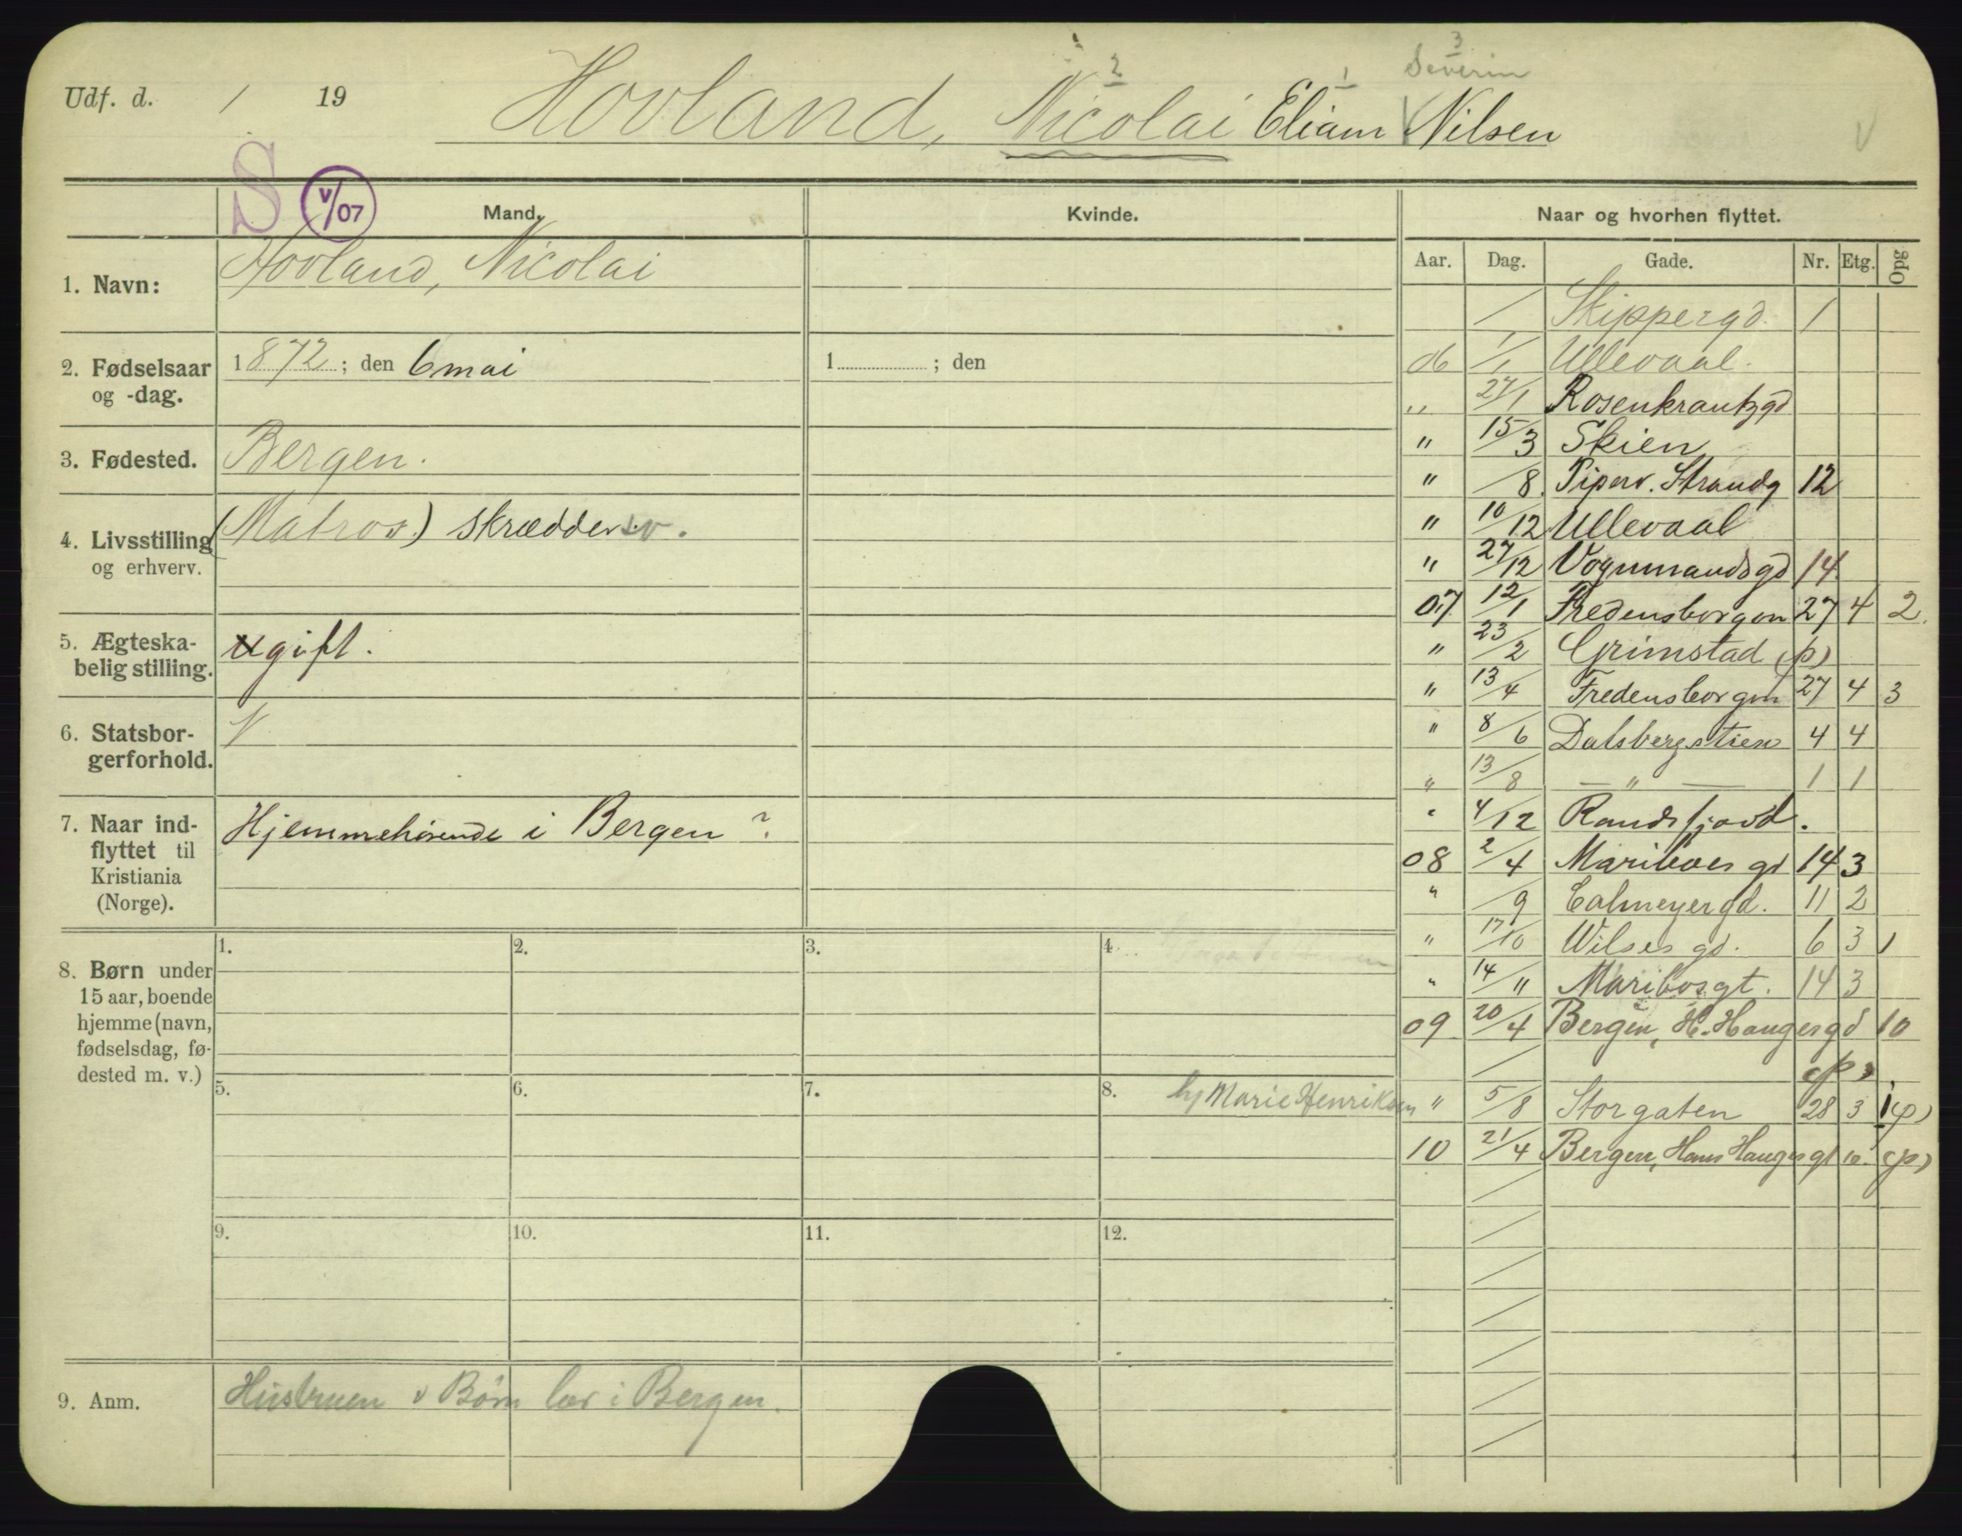 Udf. d. / 19
2 1 3
Severin
Hovland, Nicolai Eliam Nilsen
S V/07
Mand. Kvinde. Naar og hvorhen flyttet.
Aar. Dag. Gade. Nr. Etg. Opg
1. Navn: Hovland, Nicolai
2. Fødselsaar og -dag. 1872; den 6 mai 1 ; den
3. Fødested. Bergen.
4. Livsstilling og erhverv. (Matros.) skrædder
5. Ægteska-
belig stilling. gift.
6. Statsbor-
gerforhold. N
7. Naar ind-
flyttet til
Kristiania
(Norge).
Hjemmehørende i Bergen ?
8. Børn under
15 aar, boende
hjemme (navn,
fødselsdag, fø-
dested m. v.)
1. 2. 3. 4.
5. 6. 7. 8.
9. 10. 11. 12.
hj Marie Henriksen
9. Anm. Hustruen & Børn bor i Bergen.
/ Skippergd. 1
06 1/1 Ullevaal.
" 27/1 Rosenkrantzgd
" 15/3 Skien
" /8 Piperv. Strandg 12
" 10/12 Ullevaal
" 27/12 Vognmandsgd 14
07 12/1 Fredensborgvn 27 4 2.
" 23/2 Grimstad (p)
" 13/4 Fredensborgvn 27 4 3
" 8/6 Dalsbergstien 4 4
" 13/8 — " — 1 1
" 4/12 Randsfjord.
08 2/4 Mariboes gd 14 3
" /9 Calmeyergd. 11 2
" 17/10 Wilses gd. 6 3 1
" 14/11 Maribosgt. 14 3
09 20/4 Bergen, H. Haugesgd 10
(p)
" 5/8 Storgaten 28 3 1 (p)
10 21/4 Bergen, Hans Hauges gt 10. (p)